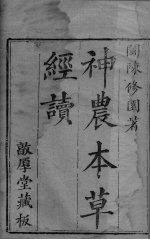 閩陳修園著
神農本草
經讀
敦厚堂藏板